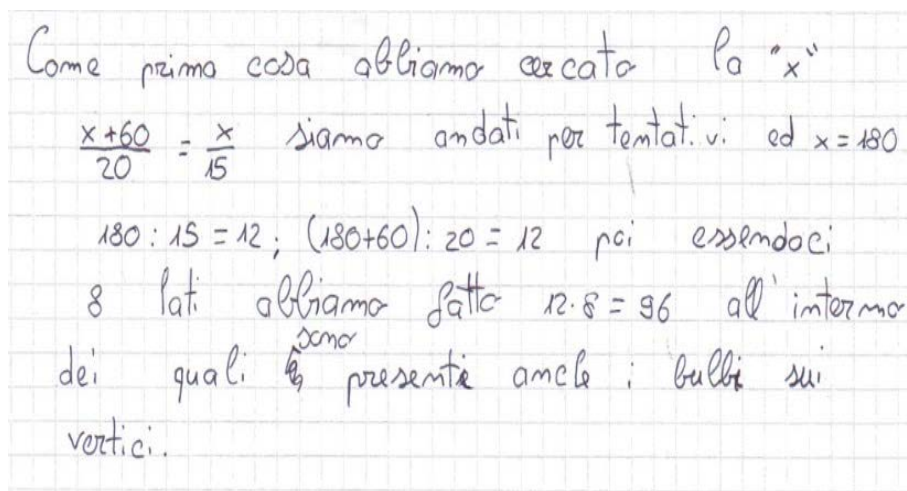 Come prima cosa abbiamo cercato la "x"
x+60/20 = x/15 siamo andati per tentativi ed x = 180
180 : 15 = 12 ; (180+60) : 20 = 12 poi essendoci
8 lati abbiamo fatto 12·8 = 96 all'interno
dei quali sono presenti anche i bulbi sui
vertici.